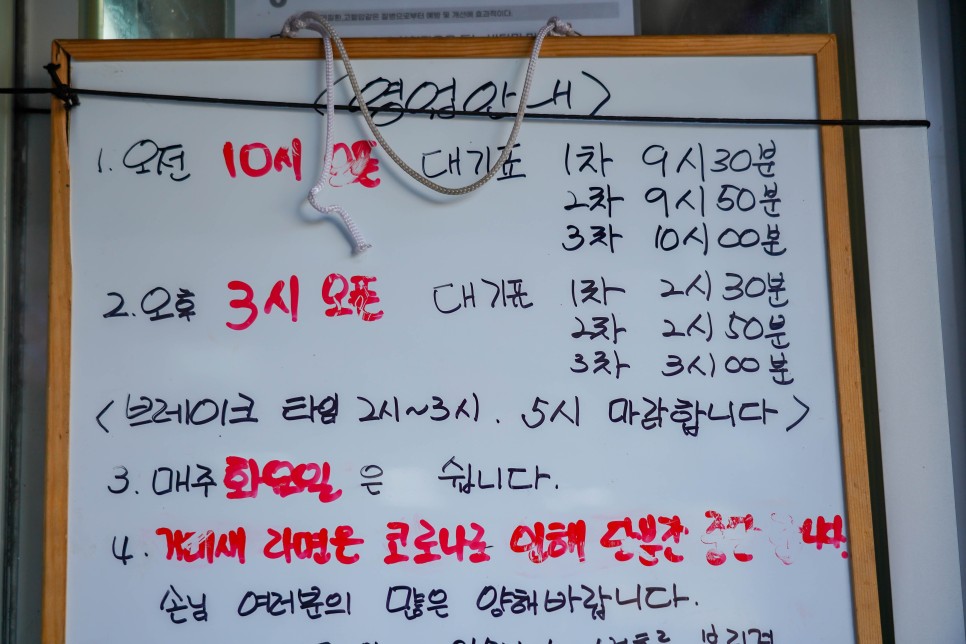 <영업안내>
1. 오전 10시 오픈 대기표 1차 9시 30분
2차 9시 50분
3차 10시 00분
2. 오후 3시 오픈 대기표 1차 2시 30분
2차 2시 50분
3차 3시 00분
<브레이크 타임 2시~3시. 5시 마감합니다>
3. 매주 화요일은 쉽니다.
4. 라면은 코로나로 인해 당분간 중단
손님 여러분의 많은 양해바랍니다.